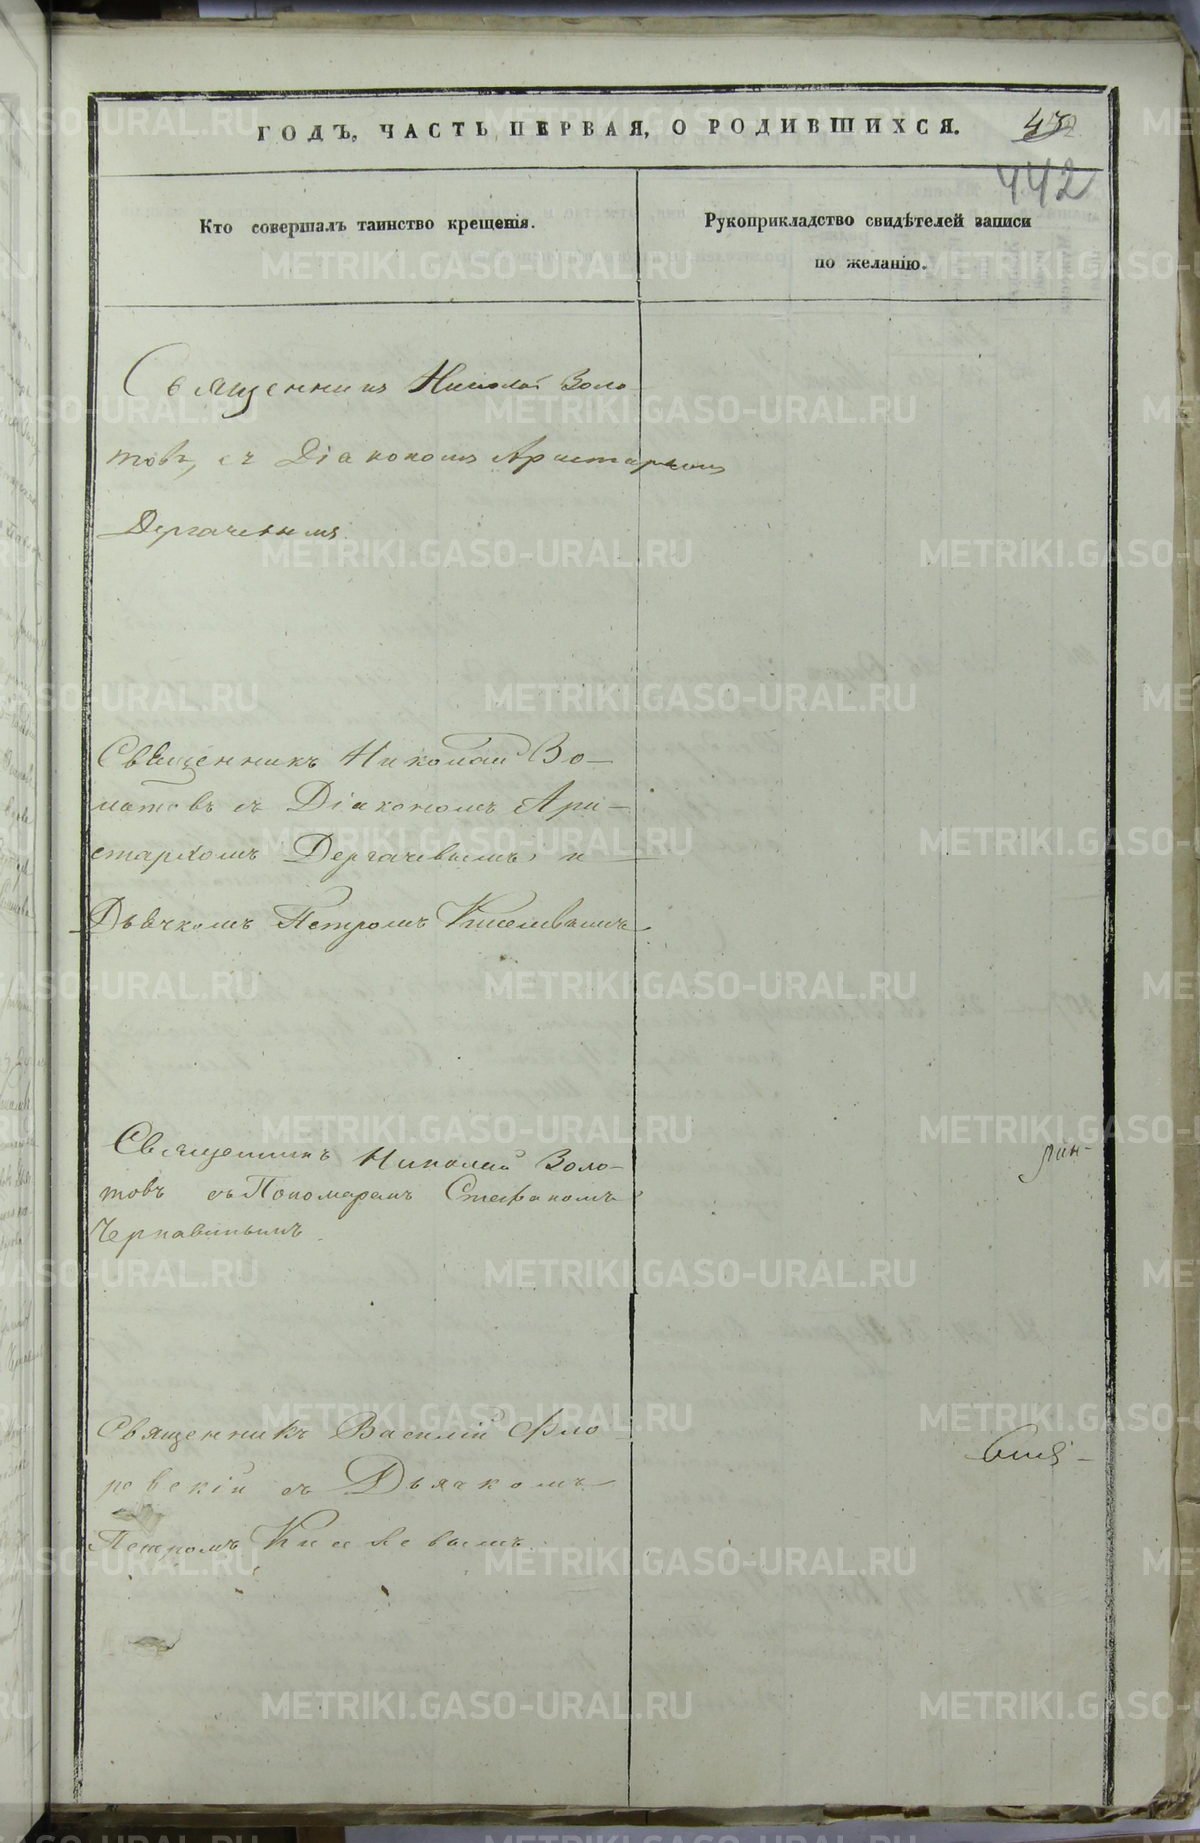 ГОДЪ, ЧАСТЬ ПЕРВАЯ, О РОДИВШИХСЯ.
442
Кто совершалъ таинство крещенія.
Рукоприкладство свидѣтелей записи
по желанію.
Священникъ Николай Воло
товъ, съ Діакономъ Аристархомъ
Дергачевымъ
Священникъ Николай Во-
лотовъ съ Діакономъ Ари-
стархомъ Дергачевымъ и
Дьячкомъ Петромъ Киселевымъ
Священникъ Николай Воло-
товъ съ Пономаремъ Стефаномъ
Чернавинымъ
Священникъ Василій Фло
ровскій съ Дьячкомъ
Петромъ Киселевымъ
METRIKI.GASO-URAL.RU